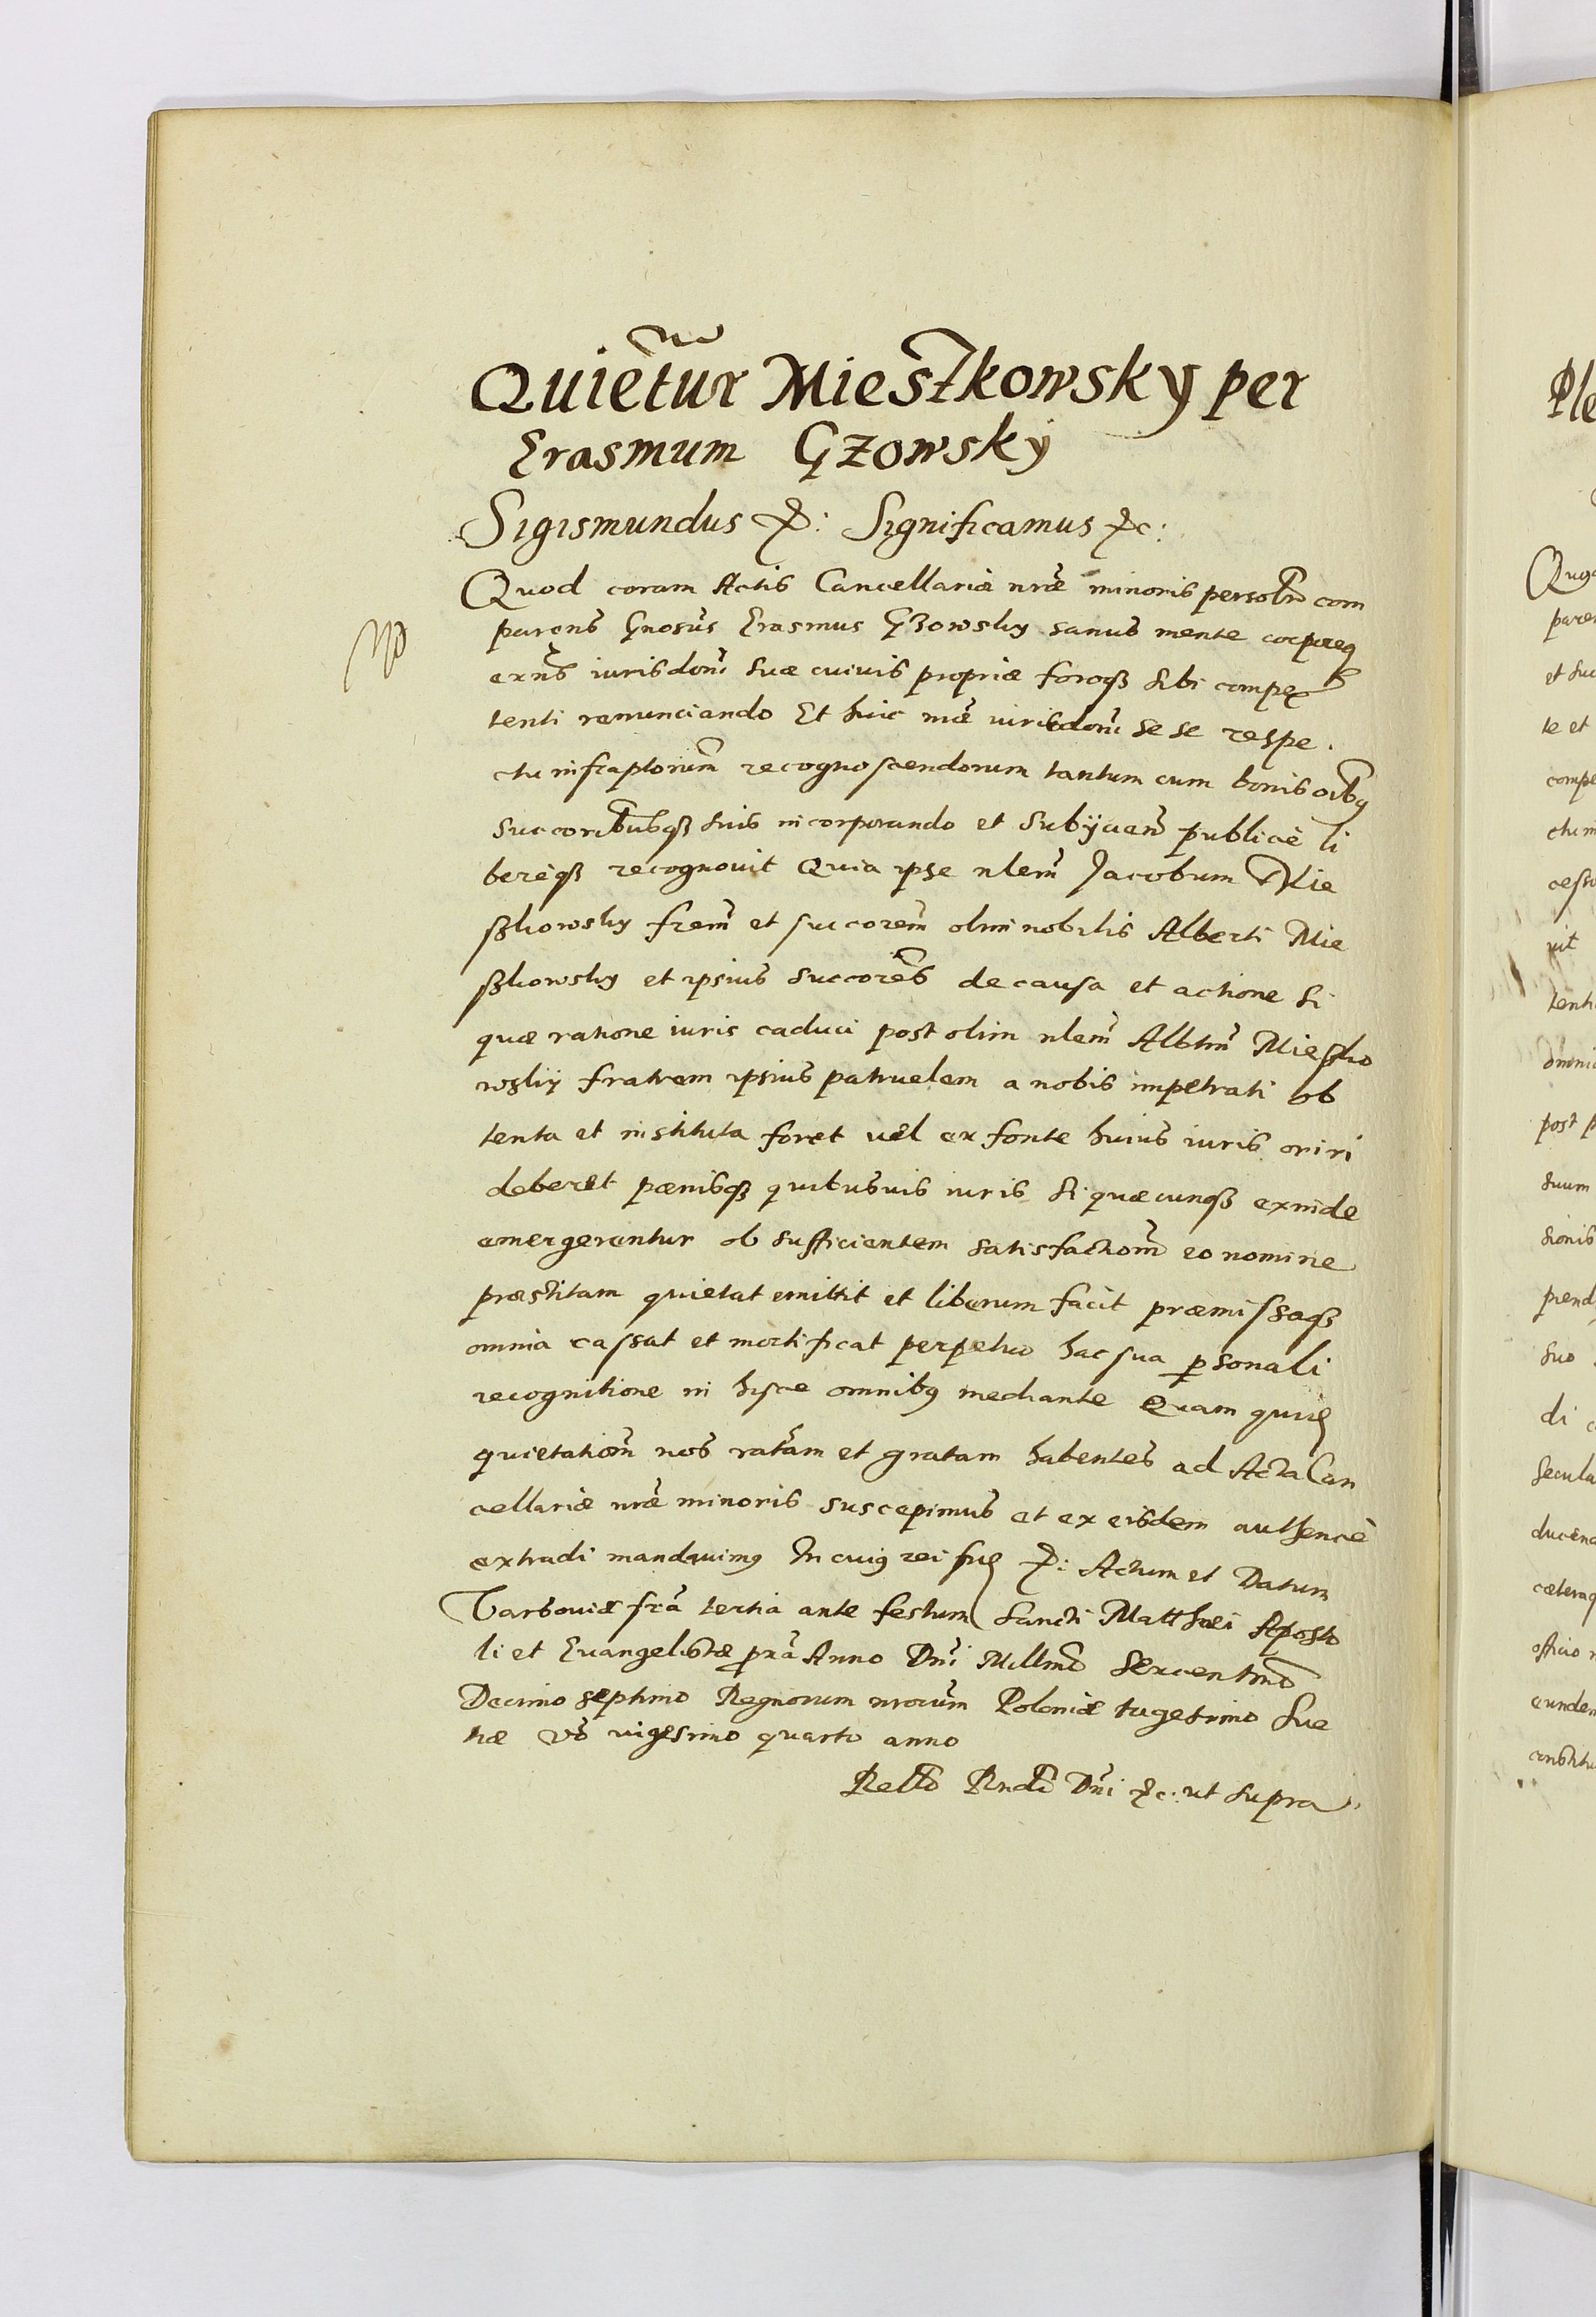 Quietur Mieszkowsky per
Erasmum Gzowsky
Sigismundus &: Significamus &c:
Quod coram Actis Cancellariæ nræ minoris personlr com
parens Gnosus Erasmus Gzowsky sanus mente corpereq
exns iurisdoni suæ cuiuis propriæ foroqß sibi compe
tenti renunciando Et huic nræ iurisdoni se se respe
ctu infraptorum recognoscendorum tantum cum bonis oibq
succoribusqß suis incorporando et subijcien publicè li
berèqß recognouit Quia ipse nlem Jacobum Mie
szkowsky frem et succorem olim nobilis Alberti Mie
szkowsky et ipsius succores de causa et actione si
quæ ratione iuris caduci post olim nlem Albtm Mieszko
wskij fratrem ipsius patruelem a nobis impetrati ob
tenta et instituta foret uel ex fonte huius iuris oriri
deberet pœnisqß quibusuis iuris si quæcunqß exinde
emergerentur ob sufficientem satisfactiom eo nomine
præstitam quietat emittit et liberum facit præmissaqß
omnia cassat et mortificat perpetuo hac sua psonali
recognitione in hisce omnibq mediante Quam quid
quietatiom nos ratam et gratam habentes ad Acta Can
cellariæ nræ minoris suscepimus et ex eisdem authencè
extradi mandauimq In cuiq rei fid &: Actum et Datum
Varsouiæ fra tertia ante festum Sancti Matthæi Aposto
li et Euangelistæ pra Anno Dni Millmo Sexcentmo
Decimo septimo Regnorum nrorum Poloniæ trigesimo Sue
tiæ vo uigesimo quarto anno
Rello Rndi Dni &c: ut supra